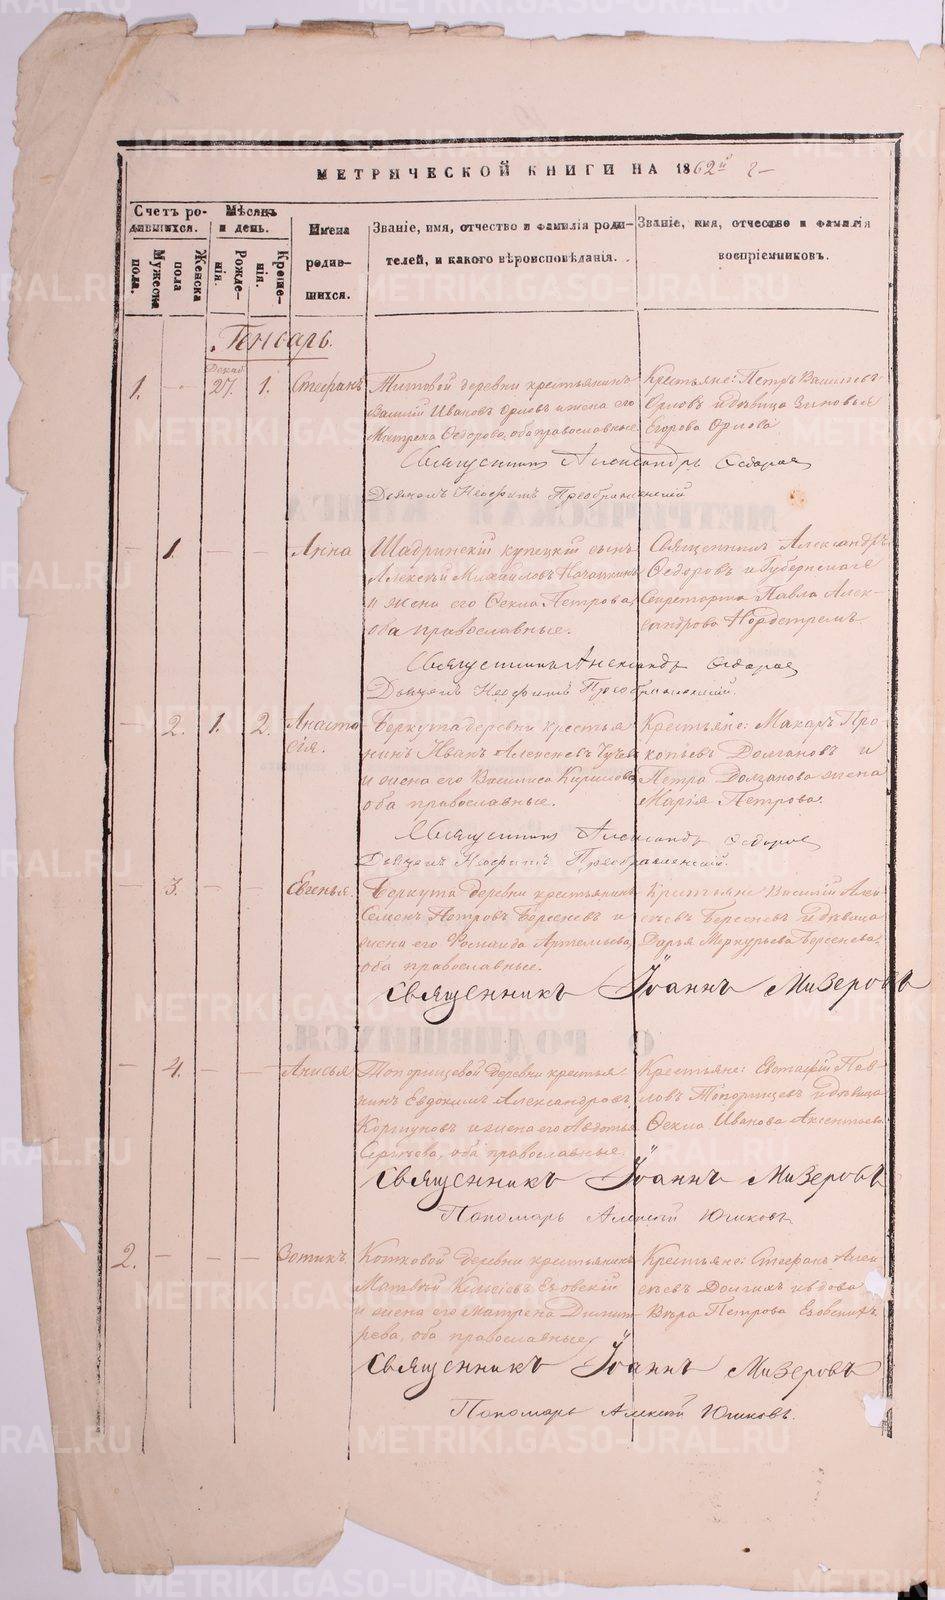 МЕТРИЧЕСКОЙ КНИГИ НА 1862й г
Счетъ родившихся.
Мужеска пола.
Женска пола
Мѣсяцъ и день.
Рожденія.
Крещенія.
Имена родившихся.
Званіе, имя, отчество и фамилія родителей, и какого вѣроисповѣданія.
Званіе, имя, отчество и фамилія воспріемниковъ.
Генварь.
1. - Декаб. 27. 1. Стефанъ
Титовой деревни крестьянинъ
Василій Ивановъ Орловъ и жена его
Матрена Ѳедорова, оба православные
Крестьяне: Петръ Васильевъ
Орловъ и дѣвица Зиновья
Егорова Орлова
Священникъ Александръ Ѳедоровъ
Дьячекъ Неофитъ Преображенскій
- 1. - - Анна
Шадринскій купецкій сынъ
Алексѣй Михайловъ
и жена его Ѳекла Петрова,
оба православные.
Священникъ Александръ
Ѳедоровъ и Губернскаго
Секретаря Павла Алек-
сандрова
Священникъ Александръ Ѳедоровъ
Дьячекъ Неофитъ Преображенскій.
- 2. 1. 2. Анаста-
сія.
Беркута деревни крестья-
нинъ Иванъ Алексѣевъ
и жена его Василиса Кирилова
оба православные.
Крестьяне: Макаръ Про-
копьевъ Долгановъ и
Петра Долганова жена
Марія Петрова.
Священникъ Александръ Ѳедоровъ
Дьячекъ Неофитъ Преображенскій.
- 3. - - Евгенья.
Беркута деревни крестьянинъ
Семенъ Петровъ Берсеневъ и
жена его Артемьева,
оба православные.
Крестьяне Василій Алек-
сѣевъ Берсеневъ и дѣвица
Дарья Меркурьева Берсенева.
Священникъ Іоаннъ Мизеровъ
- 4. - - Анисья
Топорищевой деревни крестья-
нинъ Евдокимъ Александровъ
Коршуновъ и жена его Авдотья
Сергѣева, оба православные.
Крестьяне: Евстафій Пав-
ловъ Топорищевъ и дѣвица
Ѳекла Иванова Аксентьева
Священникъ Іоаннъ Мизеровъ
Пономарь Алексѣй Юшковъ
2. - - - Зотикъ.
Котковой деревни крестьянинъ
Матвѣй Езовскій
и жена его Матрена Дмит-
рева, оба православные
Крестьяне: Стефанъ Алек-
сѣевъ Долгихъ и вдова
Вѣра Петрова Езовскихъ
Священникъ Іоаннъ Мизеровъ
Пономарь Алексѣй Юшковъ.
METRIKI.GASO-URAL.RU